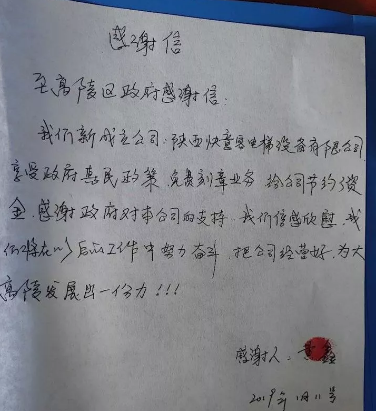 感谢信
至高陵区政府感谢信：
我们新成立公司：陕西快意电梯设备有限公司
享受政府惠民政策 免费刻章业务 给公司节约资
金.感谢政府对本公司的支持.我们倍感欣慰.我
们将在以后工作中努力奋斗.把公司经营好.为大
高陵发展出一份力！！！
感谢人：
2019年1月11号